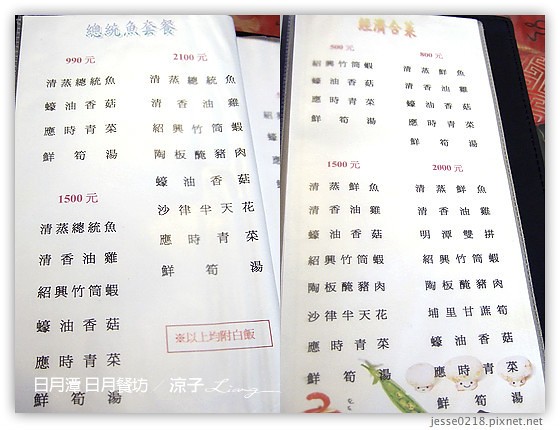 總統魚套餐
990 元
清蒸總統魚
蠔油香菇
應時青菜
鮮筍湯
1500 元
清蒸總統魚
清香油雞
紹興竹筒蝦
蠔油香菇
應時青菜
鮮筍湯
2100 元
清蒸總統魚
清香油雞
紹興竹筒蝦
陶板醃豬肉
蠔油香菇
沙律半天花
應時青菜
鮮筍湯
※以上均附白飯
經濟合菜
500 元
紹興竹筒蝦
蠔油香菇
應時青菜
鮮筍湯
800 元
清蒸鮮魚
蠔油香菇
應時青菜
鮮筍湯
1500 元
清蒸鮮魚
清香油雞
蠔油香菇
紹興竹筒蝦
陶板醃豬肉
沙律半天花
應時青菜
鮮筍湯
2000 元
清蒸鮮魚
清香油雞
明潭雙拼
紹興竹筒蝦
陶板醃豬肉
埔里甘蔗筍
蠔油香菇
應時青菜
鮮筍湯
日月潭 日月餐坊 / 涼子 Liang
jesse0218.pixnet.net